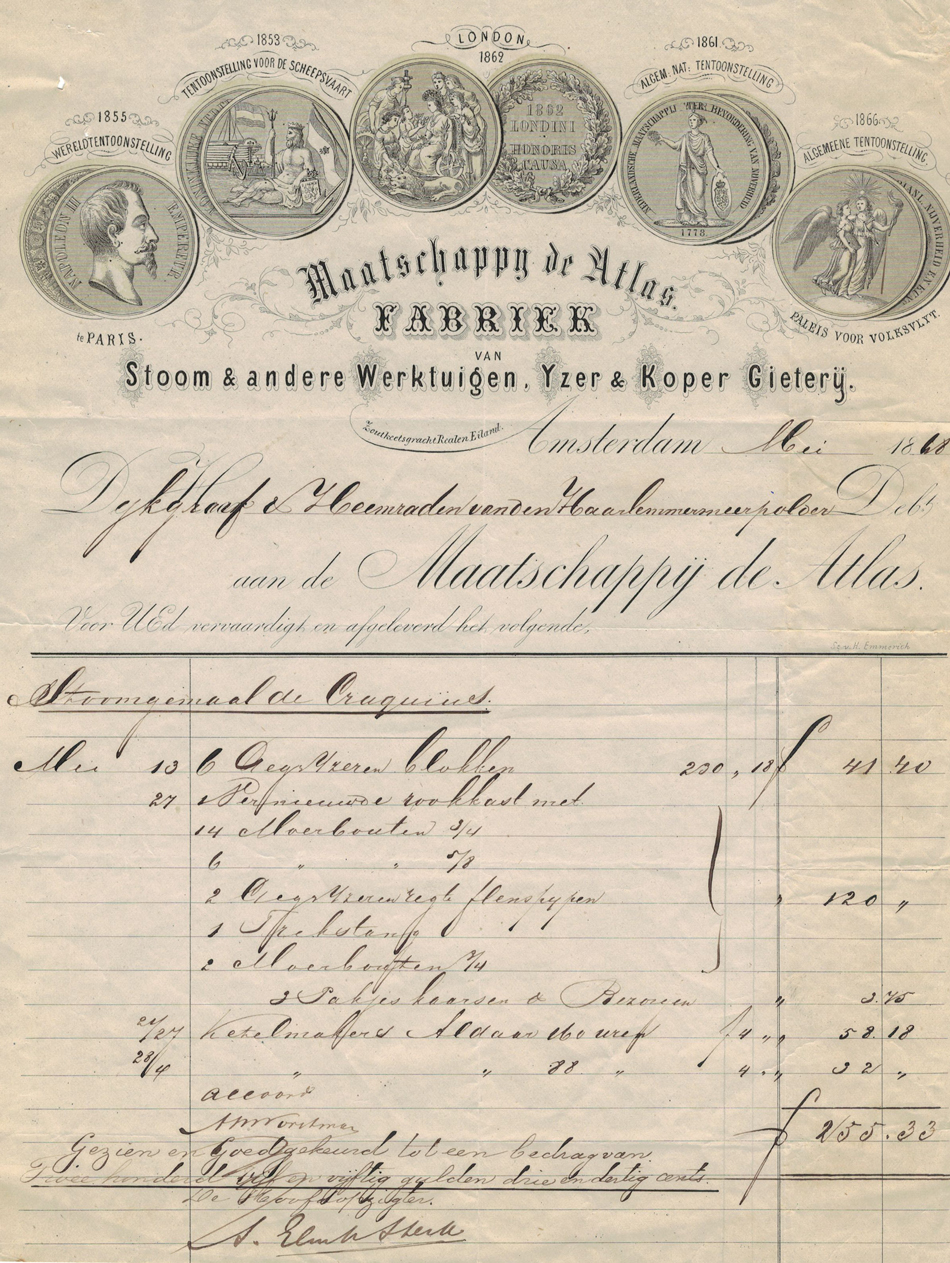 1853
TENTOONSTELLING VOOR DE SCHEEPSVAART
LONDON
1862
1861
ALGEM. NAT: TENTOONSTELLING
1855
WERELDTENTOONSTELLING
1866
ALGEMEENE TENTOONSTELLING.
NAPOLEON III EMPEREUR
1862
LONDINI
HONORIS
CAUSA
NEDERLANDSCHE MAATSCHAPPIJ TER BEVORDERING VAN NIJVERHEID
1778
NIJVERHEID EN
te PARIS.
PALEIS VOOR VOLKSVLYT.
Maatschappy de Atlas.
FABRIEK
VAN
Stoom & andere Werktuigen, Yzer & Koper Gieterij.
Zoutkeetsgracht Realen Eiland.
Amsterdam Mei 1868
Dykgraaf & Heemraden van den Haarlemmermeerpolder Debt
aan de Maatschappij de Atlas.
Voor UEd vervaardigt en afgeleverd het volgende,
Emmerich
Stoomgemaal de Cruquius.
Mei 13 6 Geg Yzeren blokken 230 " 18 f 41 40
27 1 nieuwe rookkast met
14 Moerbouten 3/4
6 " " 5/8
2 Geg Yzeren regte flenspypen " 120 "
1 Trekstang
2 Moerbouten 3/4
3 Pakjes kaarsen & Bezemen " 3.75
27 Ketelmakers Aldaar uren f 4 " " 58.18
28 " " 88 " 4 " " 32 "
accoord
f 255.33
Gezien en Goedgekeurd tot een bedrag van
Twee honderd vijf en vijftig gulden drie en dertig cents.
De Hoofdopzigter.
A. Elink Sterk